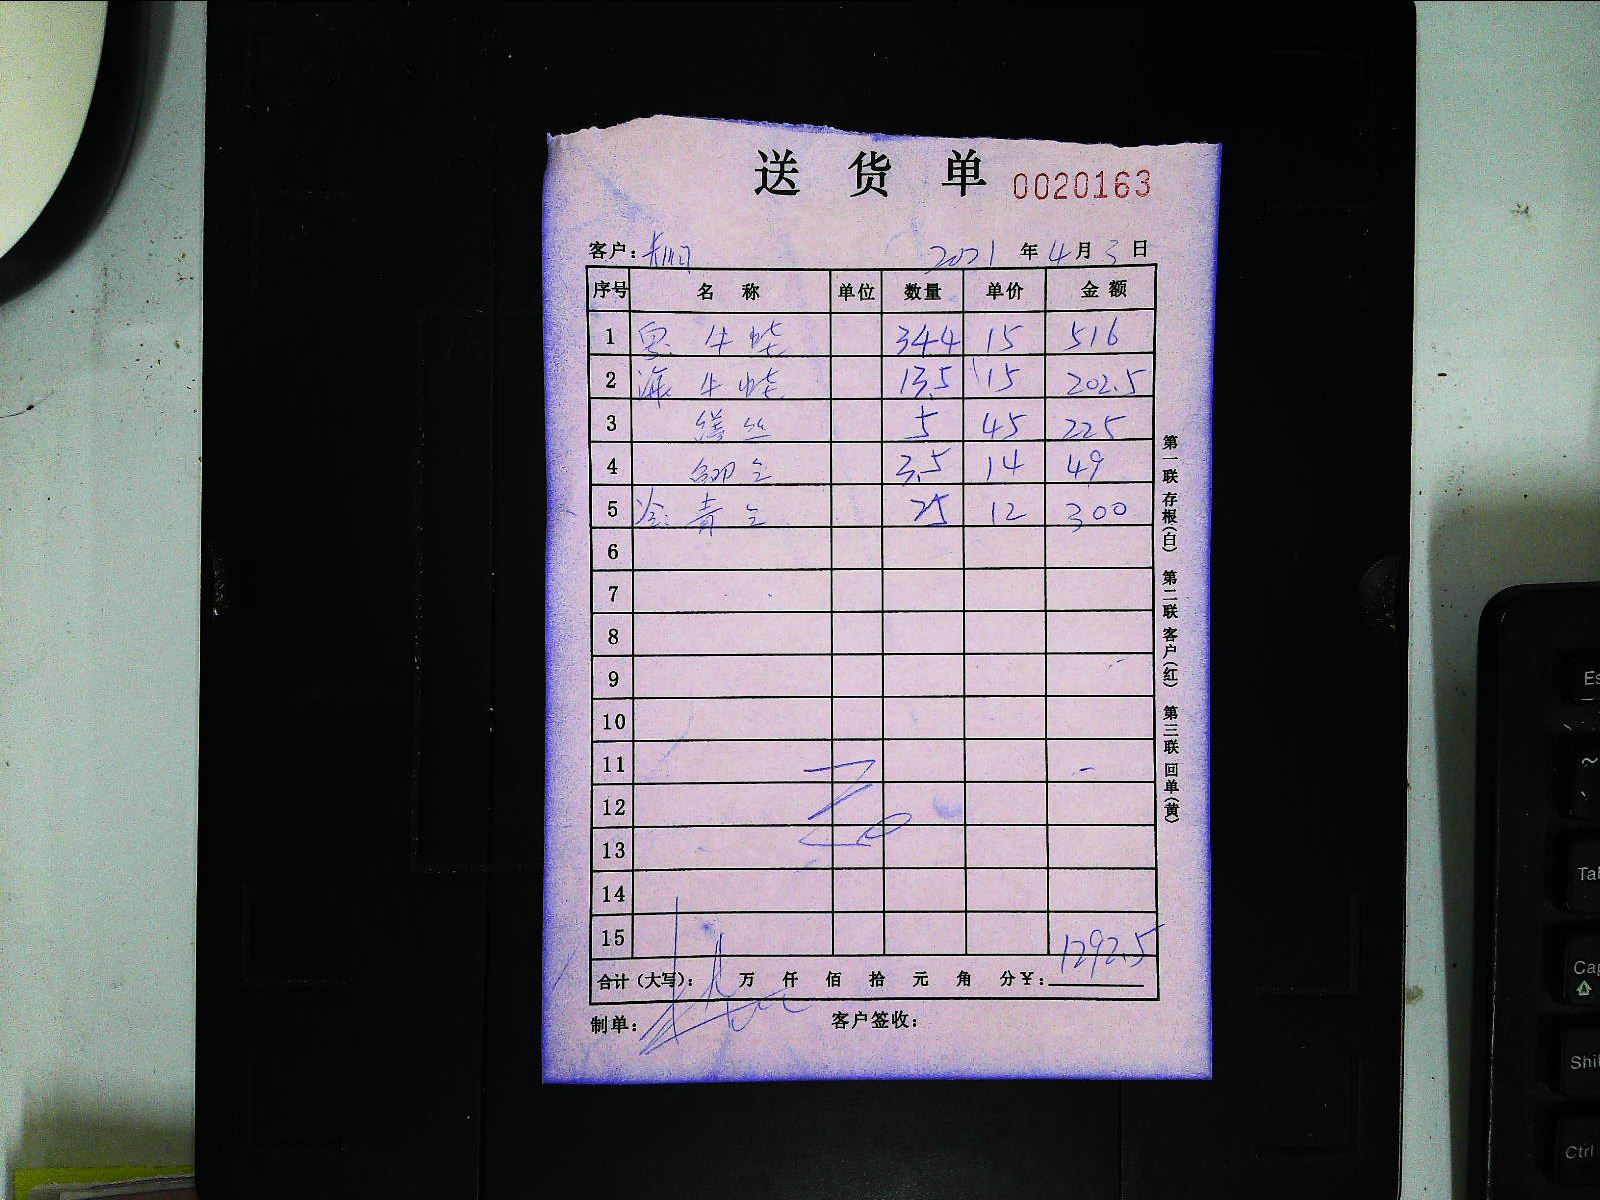 送 货 单 0020163
客户: 2021 年 4 月 3 日
序号 名 称 单位 数量 单价 金额
1 牛蛙 344 15 516
2 牛蛙 13.5 15 202.5
3 丝 5 45 225
4 3.5 14 49
5 青 25 12 300
6
7
8
9
10
11
12
13
14
15 1292.5
合计(大写): 万 仟 佰 拾 元 角 分¥:
制单: 客户签收:
第一联 存根(白) 第二联 客户(红) 第三联 回单(黄)
Es
~
Tab
Cap
Shi
Ctrl